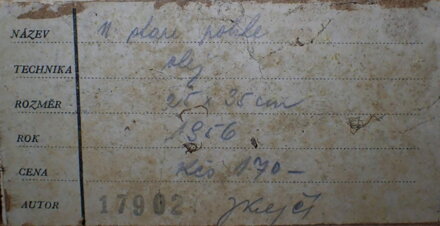 NÁZEV
TECHNIKA olej
ROZMĚR 25 x 35 cm
ROK 1956
CENA Kčs 170 –
AUTOR 17902